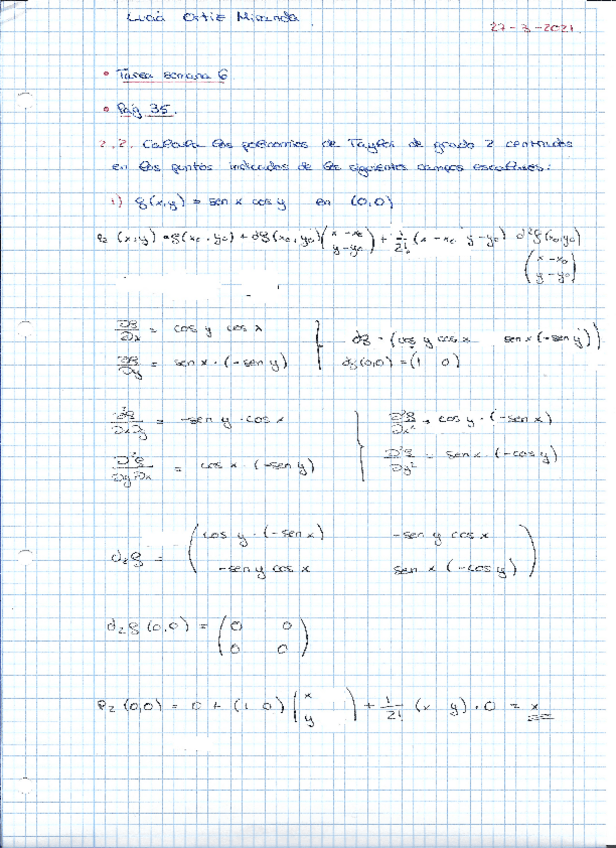 Lucía Ortiz Miranda
27-3-2021
• Tarea semana 6
• Pág 35.
2.2. Calcula los polinomios de Taylor de grado 2 centrados
en los puntos indicados de los siguientes campos escalares:
1) f(x,y) = sen x cos y en (0,0)
P₂ (x,y) = f(x₀,y₀) + df(x₀,y₀) (x-x₀ y-y₀) + 1/2! (x-x₀ y-y₀) d²f(x₀,y₀)
(x-x₀ y-y₀)
∂f/∂x = cos y cos x df = (cos y cos x sen x (-sen y))
∂f/∂y = sen x · (-sen y) df(0,0) = (1 0)
∂²f/∂x∂y = -sen y · cos x ∂²f/∂x² = cos y · (-sen x)
∂²f/∂y∂x = cos x · (-sen y) ∂²f/∂y² = sen x · (-cos y)
d₂f = (cos y · (-sen x) -sen y cos x
-sen y cos x sen x (-cos y))
d₂f (0,0) = (0 0
0 0)
P₂ (0,0) = 0 + (1 0) (x y) + 1/2! (x y) · 0 = x